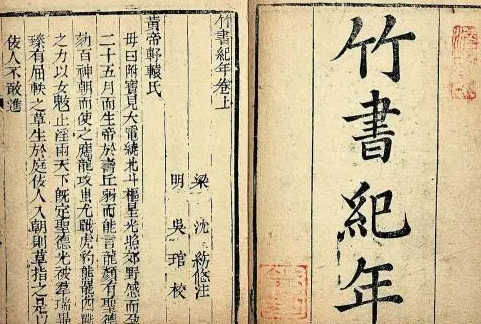 竹書紀年
竹書紀年卷上
梁 沈約修注
明 吳琯校
黃帝軒轅氏
母曰附寶見大電繞北斗樞星光照郊野感而孕
二十五月而生帝於壽丘弱而能言龍顏有聖德
劾百神朝而使之應龍攻蚩尤戰虎豹熊羆四
之力以女魃止淫雨天下既定聖德光被羣瑞畢
臻有屈軼之草生於庭佞人入朝則草指之是以
佞人不敢進